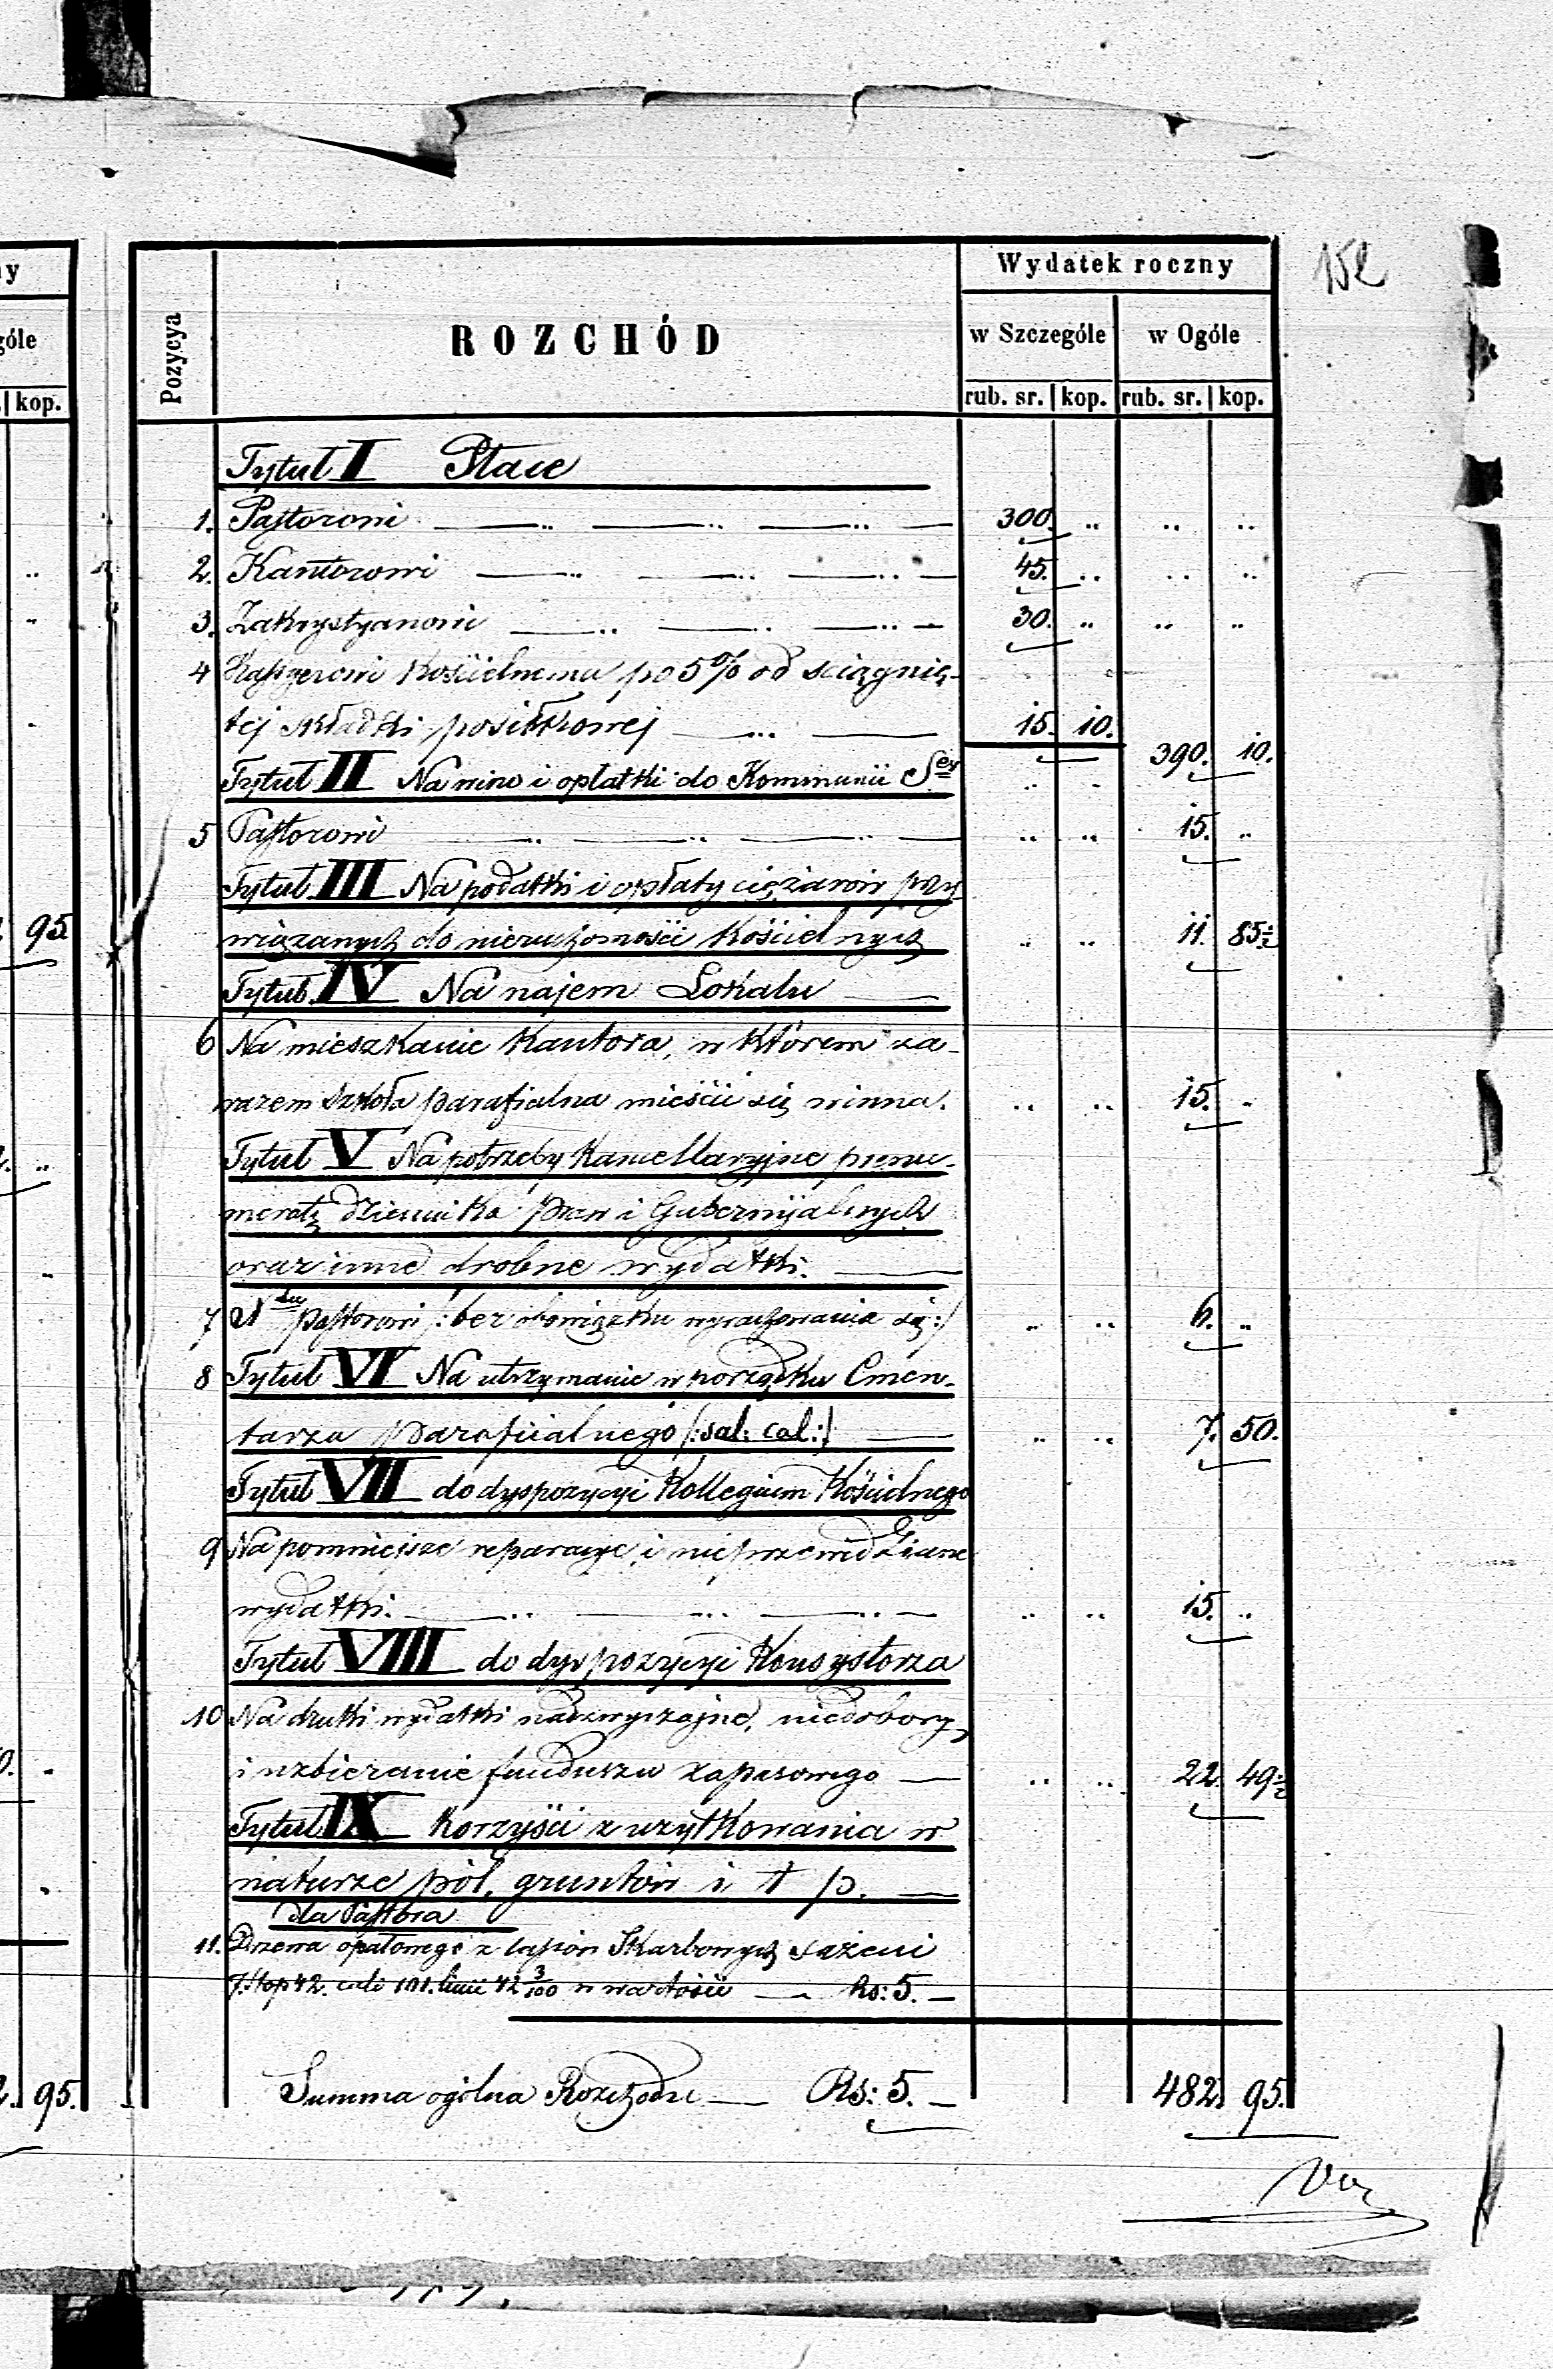 152
Wydatek roczny
Pozycya
ROZCHÓD
góle
w Szczególe w Ogóle
kop.
rub. sr. kop. rub. sr. kop.
Tytuł I Płace
1. Pastorowi 300. " " "
2. Kantorowi 45. " " "
3. Zakrystyanowi 30. " " "
4 Kassyerowi Kościelnemu po 5% od ściągnię-
tej składki posiłkowej 15. 10. 390. 10.
Tytuł II Na wino i opłatki do Kommunii Sej
5 Pastorowi " " 15. "
Tytuł III Na podatki i opłaty ciężarów przy-
wiązanych do nieruchomości Kościelnych " " 11. 85½
Tytuł IV Na najem Lokalu
6 Na mieszkanie Kantora, w którem za-
razem szkoła parafialna mieścić się winna. " " 15. "
Tytuł V Na potrzeby Kancellaryjne prenu-
meratę dziennika praw i Gubernijalnych
oraz inne drobne wydatki.
7 Pastorowi /: bez obowiązku wyrachowania się :/ " " 6. "
8 Tytuł VI Na utrzymanie w porządku Cmen-
tarza parafialnego /: sal: cal: :/ " " 7. 50.
Tytuł VII do dyspozycyi Kollegium Kościelnego
9 Na pomniejsze reparacye i nieprzewidziane
wydatki. " " 15. "
Tytuł VIII do dyspozycyi Konsystorza
10 Na druki wydatki nadzwyczajne, niedobory
i uzbieranie funduszu zapasowego " " 22. 49½
Tytuł IX Korzyści z użytkowania w
naturze pól, gruntów i t p.
dla Pastora
11. Drzewa opałowego z lasów Skarbowych sążeni
7. stop 42. cali 101. linii 42 3/100 w wartości Rs: 5. —
Summa ogólna Rozchodu — Rs: 5. — 482. 95.
95
95.